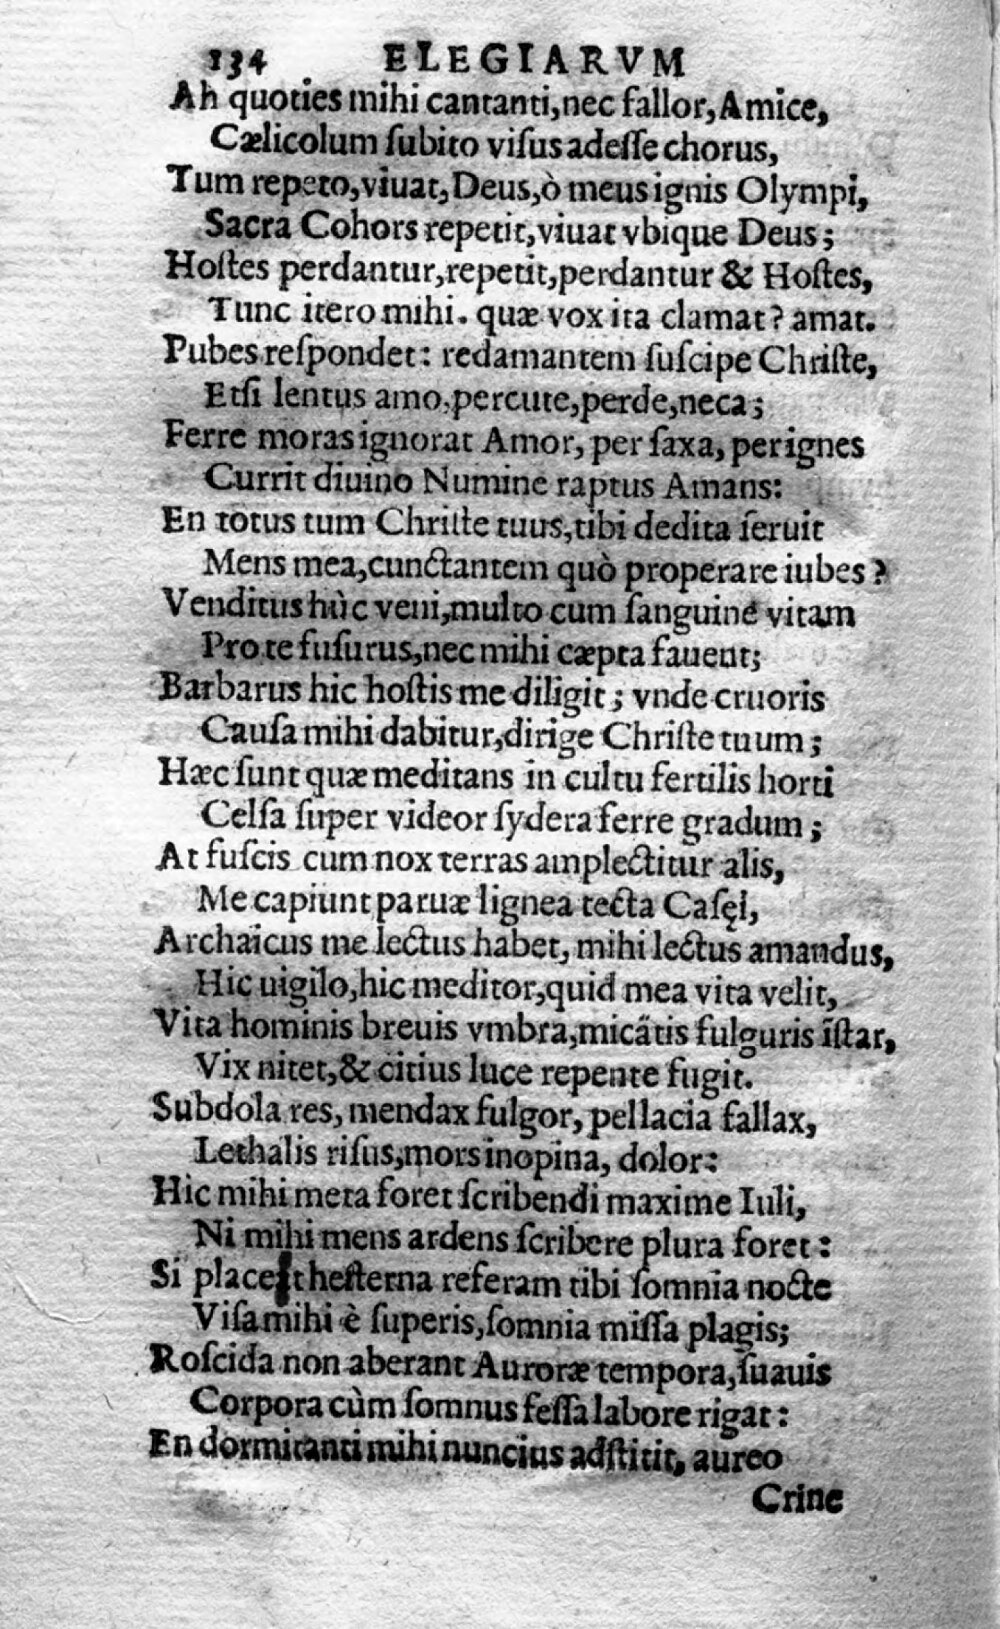 134 ELEGIARVM
Ah quoties mihi cantanti, nec fallor, Amice,
Cælicolum ſubito viſus adeſſe chorus,
Tum repeto, viuat, Deus, ò meus ignis Olympi,
Sacra Cohors repetit, viuat vbique Deus;
Hoſtes perdantur, repetit, perdantur & Hoſtes,
Tunc itero mihi. quæ vox ita clamat? amat.
Pubes reſpondet: redamantem ſuſcipe Chriſte,
Etſi lentus amo, percute, perde, neca;
Ferre moras ignorat Amor, per ſaxa, per ignes
Currit diuino Numine raptus Amans:
En totus tum Chriſte tuus, tibi dedita ſeruit
Mens mea, cunctantem quò properare iubes?
Venditus hùc veni, multo cum ſanguine vitam
Pro te fuſurus, nec mihi cæpta fauent;
Barbarus hic hoſtis me diligit; vnde cruoris
Cauſa mihi dabitur, dirige Chriſte tuum;
Hæc ſunt quæ meditans in cultu fertilis horti
Celſa ſuper videor ſydera ferre gradum;
At fuſcis cum nox terras amplectitur alis,
Me capiunt paruæ lignea tecta Caſęi,
Archaicus me lectus habet, mihi lectus amandus,
Hic uigilo, hic meditor, quid mea vita velit,
Vita hominis breuis vmbra, micãtis fulguris ĩſtar,
Vix nitet, & citius luce repente fugit.
Subdola res, mendax fulgor, pellacia fallax,
Lethalis riſus, mors inopina, dolor:
Hic mihi meta foret ſcribendi maxime Iuli,
Ni mihi mens ardens ſcribere plura foret:
Si placeat heſterna referam tibi ſomnia nocte
Viſa mihi è ſuperis, ſomnia miſſa plagis;
Roſcida non aberant Auroræ tempora, ſuauis
Corpora cùm ſomnus feſſa labore rigat:
En dormitanti mihi nuncius adſtitit, aureo
Crine